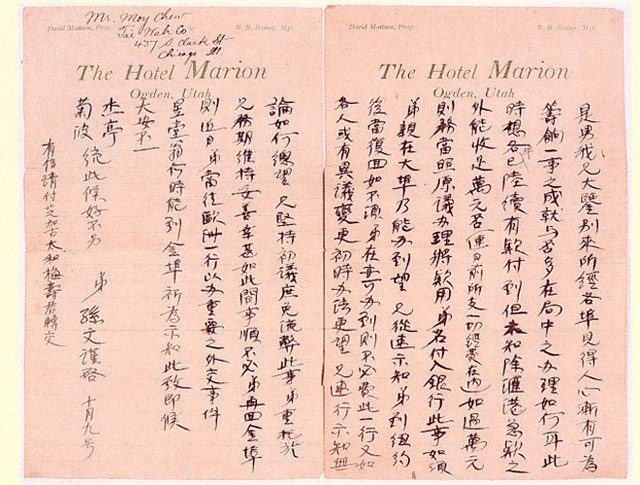 David Mattson, Prop.
R. B. Raney, Mgr.
The Hotel Marion
Ogden, Utah
是男我兄大鑒別來所經各埠見得人心漸有可為
籌餉一事之成就与否多在局中之办理如何耳此
時想各埠已陸續有欵付到但未知除滙港急欵之
外能收足萬元否連日前所支一切經費在內如過萬元
則務當照原議办理將欵用弟名付入銀行此事如須
弟親在大埠乃能办到望 兄從速示知弟到纽約
後當復回如不須弟在亦可办到則不必費此一行又如
各人或有異議變更初時办法更望 兄速行示知無
Mr. Moy Chew
Tai Wah Co
437 S. Clark St
Chicago Ill.
David Mattson, Prop.
R. B. Raney, Mgr.
The Hotel Marion
Ogden, Utah
論如何總望 兄堅持初議庶免流弊此事弟重托於
兄務期維持妥善幸甚如此間事順不必弟再回金埠
則近日弟當往歐洲一行以办重要之外交事件
星堂翁何時能到金埠祈為示知此致即候
大安不一
杰亭
菊波 統此候好不另 弟 孫文謹啓 十月九号
有信請付芝加古太和梅壽君轉交